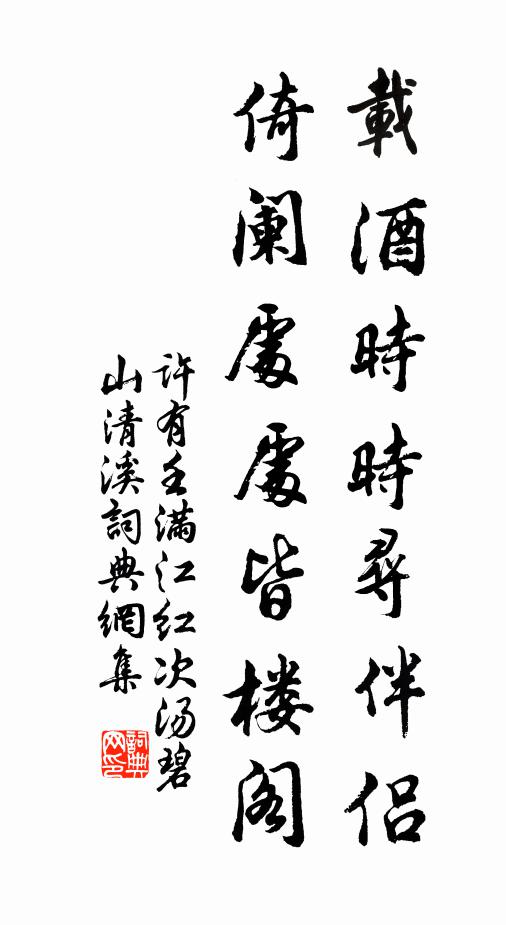 載酒時時尋伴侶
倚阑處處皆楼阁
许有壬满江红次汤碧
山清溪詞典網集
詞典
网印